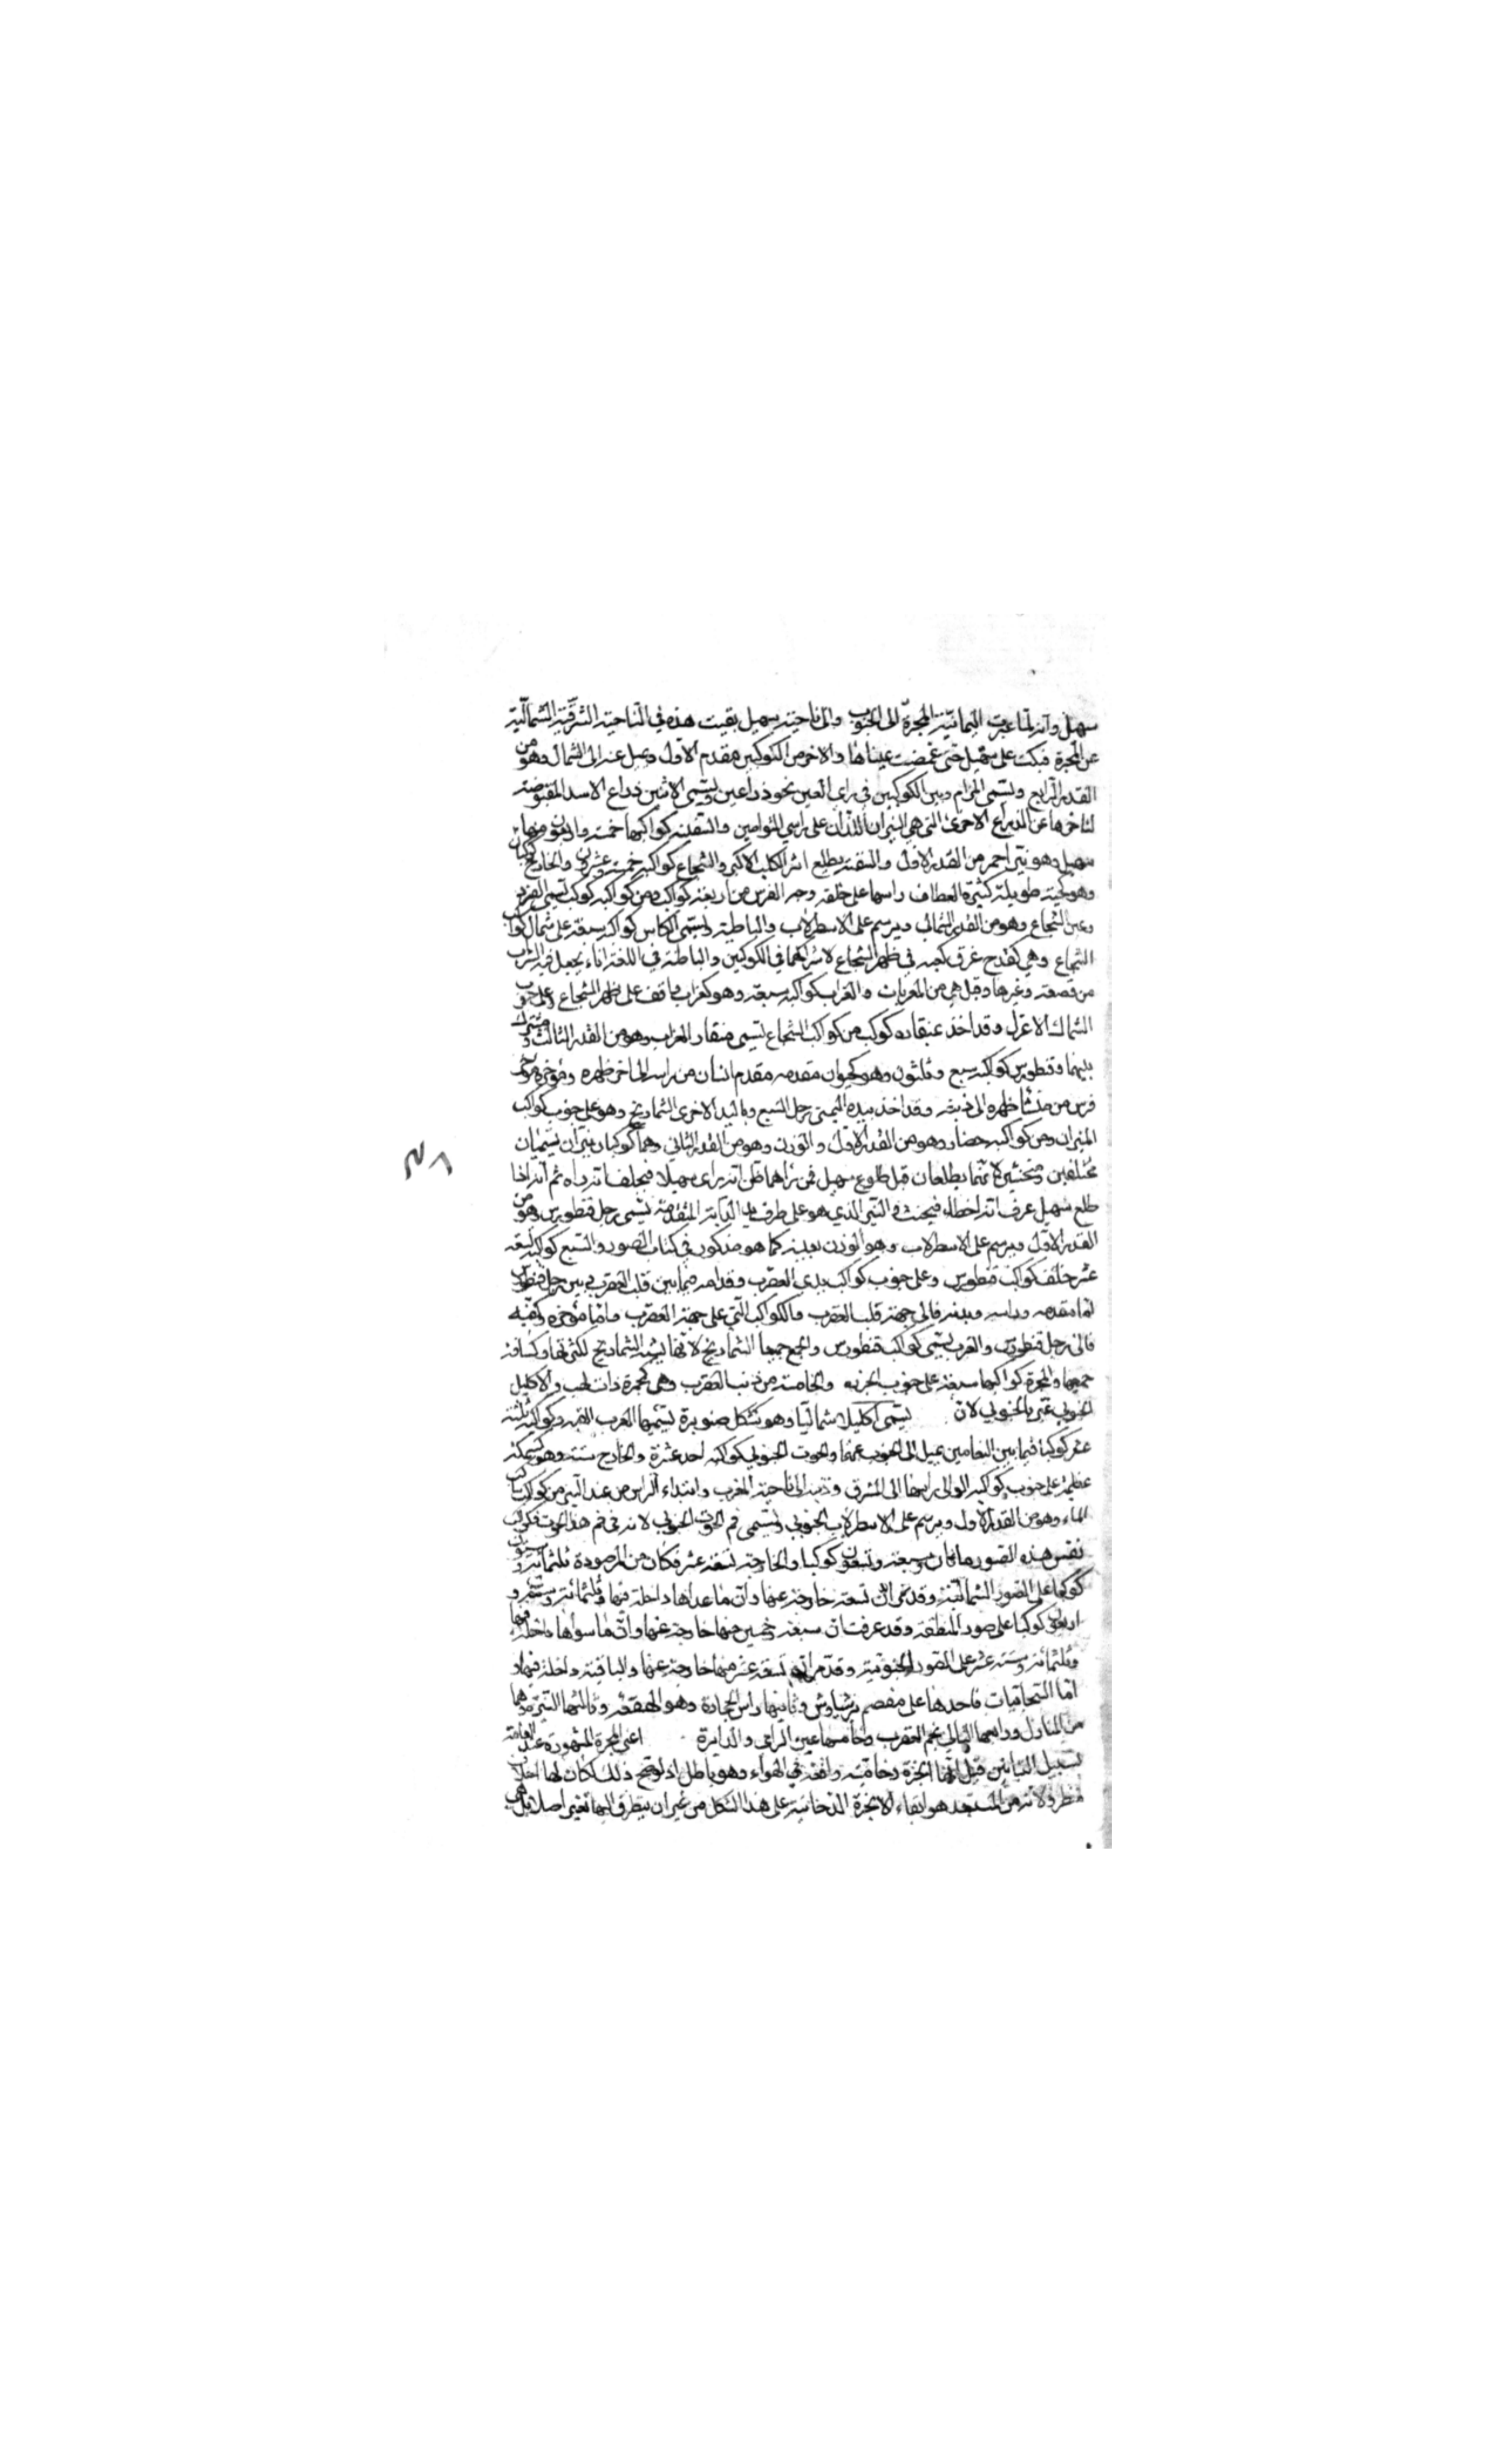 سهيل وانه لما عبرت اليمانية المجرة الى الجنوب والى ناحية سهيل بقيت هذه في الناحية الشرقية الشمالية
عن المجرة فبكت على سهيل حتى غمضت عيناها والاخر من الكوكبين مقدم الاول ويميل عنه الى الشمال وهو من
القدر الرابع ويسمى المرزم وبين الكوكبين في راى العين نحو ذراعين ويسمى الاثنين ذراع الاسد المقبوضة
لتاخرها عن الذراع الاخرى التي هي النيران اللذان على راسي التوامين والسفينة كواكبها خمسة واربعون منها
سهيل وهو نير احمر من القدر الاول والسفينة يطلع اثر الكلب الاكبر والشجاع كواكبه خمسة وعشرون والخارج كوكبان
وهو كحية طويلة كثيرة العطاف راسها على خلقة وجه الفرس من اربعة كواكب ومن كواكبه كوكب يسمى الفرد
وعين الشجاع وهو من القدر الثاني ويرسم على الاسطرلاب والباطية ويسمى الكاس كواكبه سبعة على شمال كواكب
الشجاع وهي كقدح غرق كعبه في ظهر الشجاع لاشتراكهما في الكوكبين والباطية في اللغة اناء يجعل فيه الشراب
من قصعة وغيرها وقيل هي من المعربات والغراب كواكبه سبعة وهو كغراب واقف على ظهر الشجاع وعلى جنوب
السماك الاعزل وقد اخذ بمنقاره كوكب من كواكب الشجاع يسمى منقار الغراب وهو من القدر الثالث ومشترك
بينهما وقنطورس كواكبه سبع وثلثون وهو كحيوان مقدمه مقدم انسان من راسه الى اخر ظهره ومؤخره مؤخر
فرس من منشأ ظهره الى ذنبه وقد اخذ بيده اليمنى رجل السبع وباليد الاخرى الشماريخ وهو على جنوب كواكب
الميزان ومن كواكبه حضار وهو من القدر الاول والوزن وهو من القدر الثاني وهما كوكبان نيران يسميان
محلفين ومحنثين لانهما يطلعان قبل طلوع سهيل فمن يراهما ظن انه يرى سهيلا فيحلف انه رآه ثم انه اذا
طلع سهيل عرف انه اخطاء فيحنث والنير الذي هو على طرف يد الدابة المتقدمة يسمى رجل قنطورس وهو من
القدر الاول ويرسم على الاسطرلاب وهو الوزن بعينه كما هو مذكور في كتاب الصور والسبع كواكبه تسعة
عشر خلف كواكب قنطورس وعلى جنوب كواكب بدن العقرب وقدامه فيما بين قلب العقرب وبين رجل قنطورس
اما مقدمه وراسه ويديه فالى جهة قلب العقرب والكواكب التي على جهة العقرب واما مؤخره وكفه
فالى رجل قنطورس والعرب يسمى كواكب قنطورس والسبع جميعا الشماريخ لانها يشبه الشماريخ لكثرتها وكثافة
جميعها والمجمرة كواكبها سبعة على جنوب الخرزة والخامسة من ذنب العقرب وهي كمجمرة ذات لهب والاكليل
الجنوبي عبر بالجنوبي لان يسمى اكليلا شماليا وهو بشكل صنوبرة يسميها العرب القبة وكواكبه ثلثة
عشر كوكبا فيما بين النعامين يميل الى الجنوب عنهما والحوت الجنوبي كواكبه احد عشرة والخارج ستة وهو كسمكة
عظيمة على جنوب كواكب الدلو راسها الى المشرق وذنبه الى ناحية المغرب وابتداء الراس من عند النير من كواكب ساكب
الماء وهو من القدر الاول ويرسم على الاسطرلاب الجنوبي ويسمى فم الحوت الجنوبي لانه في فم هذا الحوت فكواكب
نفس هذه الصور ماتان وسبعة وتسعون كوكبا والخارجة تسعة عشر فكان من المرصودة ثلثمائة وستون
كوكبا على الصور الشمالية وقد مر ان تسعة خارجة عنها وان ما عداها داخلة فيها وثلثمائة وستة و
اربعون كوكبا على صور المنطقة وقد عرفت ان سبعة وخمسين منها خارجة عنها وان ما سواها داخلة فيها
وثلثمائة وستة عشر على الصور الجنوبية وقد مر ان تسعة عشر منها خارجة عنها والباقية داخلة فيها و
اما السحابيات فاحدها على معصم برشاوش وثانيها راس الجبار وهو الهقعة وثالثها النثرة وهما
من المنازل ورابعها التالي نجم العقرب وخامسها عين الرامي والدائرة اعنى المجرة المشهورة عند العامة
بسبيل التبانين قيل انها ابخرة دخانية واقفة في الهواء وهو باطل اذ لو صح ذلك لكان لها اختلاف
منظر ولانه من المستبعد هو لبقاء الابخرة الدخانية على هذا الشكل من غير ان يتطرق اليها تغير اصلا بل هي